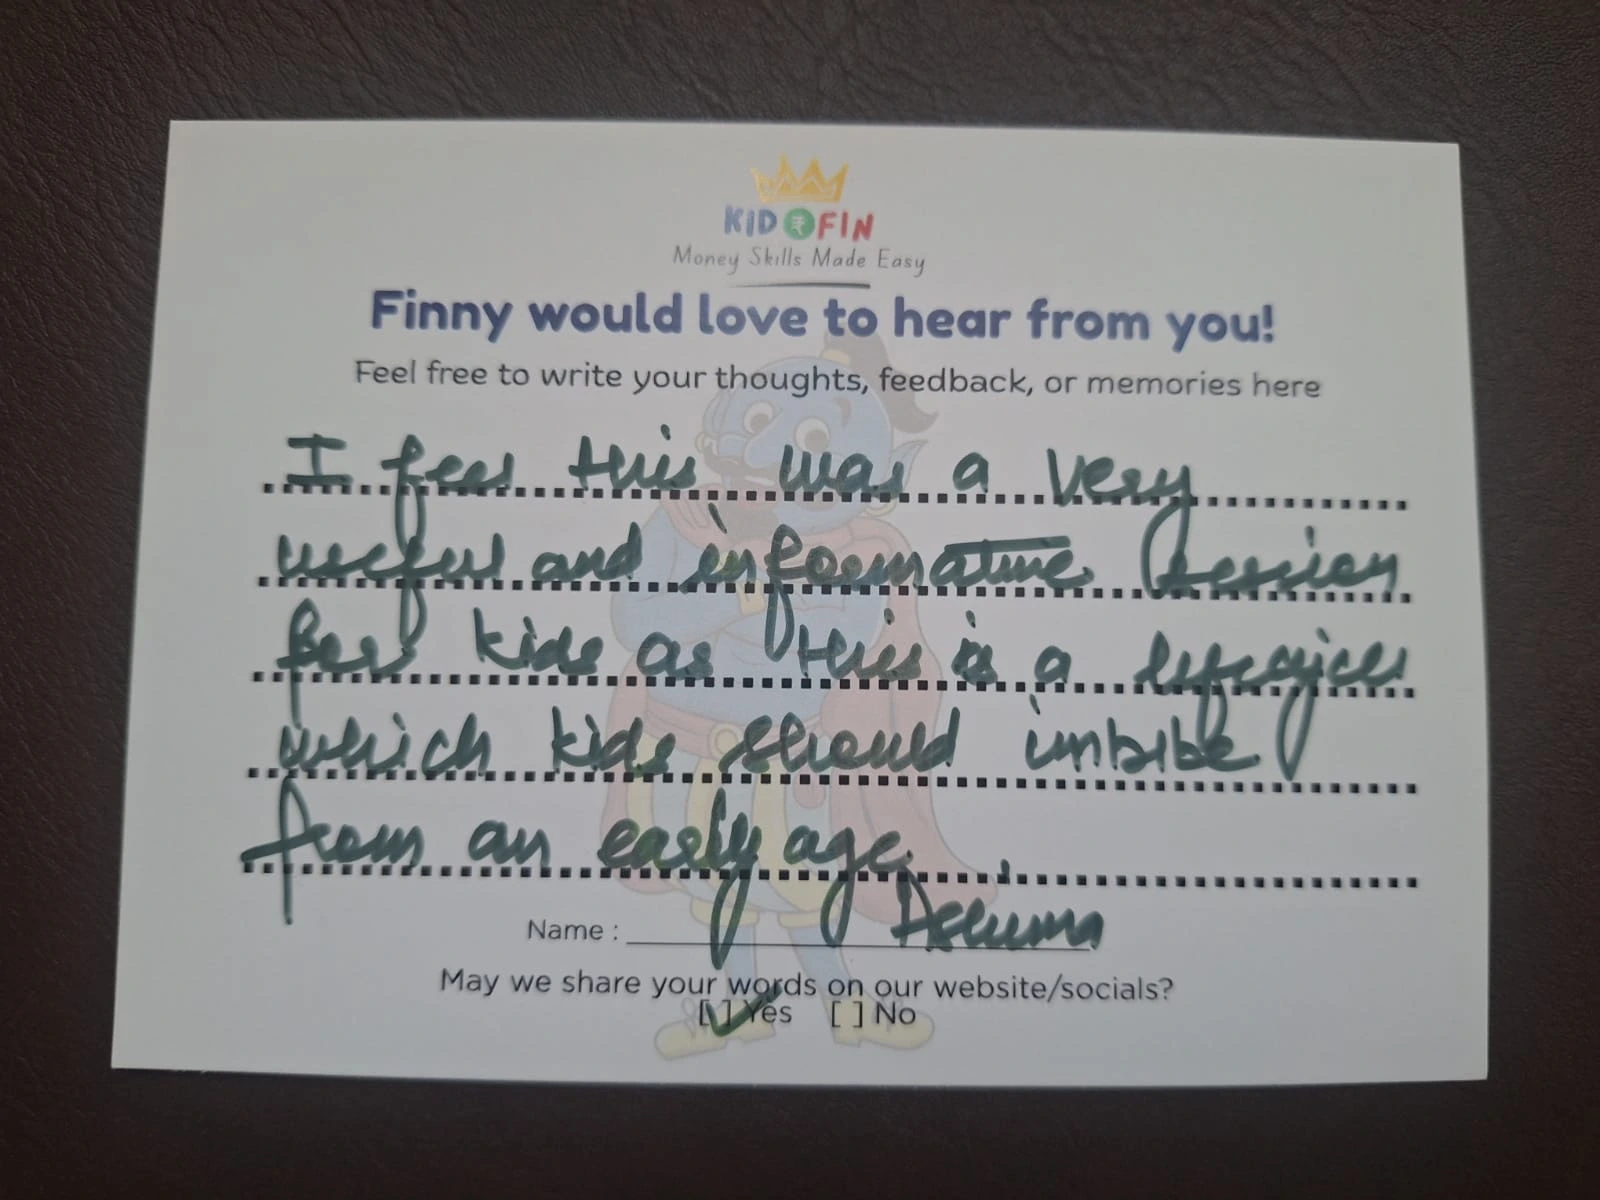 KID ₹ FIN
Money Skills Made Easy
Finny would love to hear from you!
Feel free to write your thoughts, feedback, or memories here
I feel this was a very
useful and informative session
for kids as this is a
which kids should imbibe
from an early age.
Name :
May we share your words on our website/socials?
[✓] Yes [ ] No